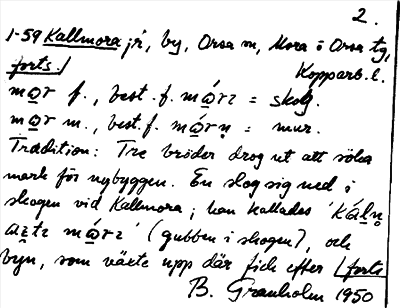 2.
1-59 Kallmora jä, by, Orsa sn, Mora o Orsa tg,
forts./ Kopparb. l.
mo̲r f., best. f. mó̲rı = skog.
mo̲r m., best. f. mó̲rṇ = mur.
Tradition: Tre bröder drog ut att söka
mark för nybyggen. En slog sig ned i
skogen vid Kallmora; han kallades 'káḷṇ
mó̲rı' (gubben i skogen), och
byn, som växte upp där fick efter /forts
B. Granholm 1950